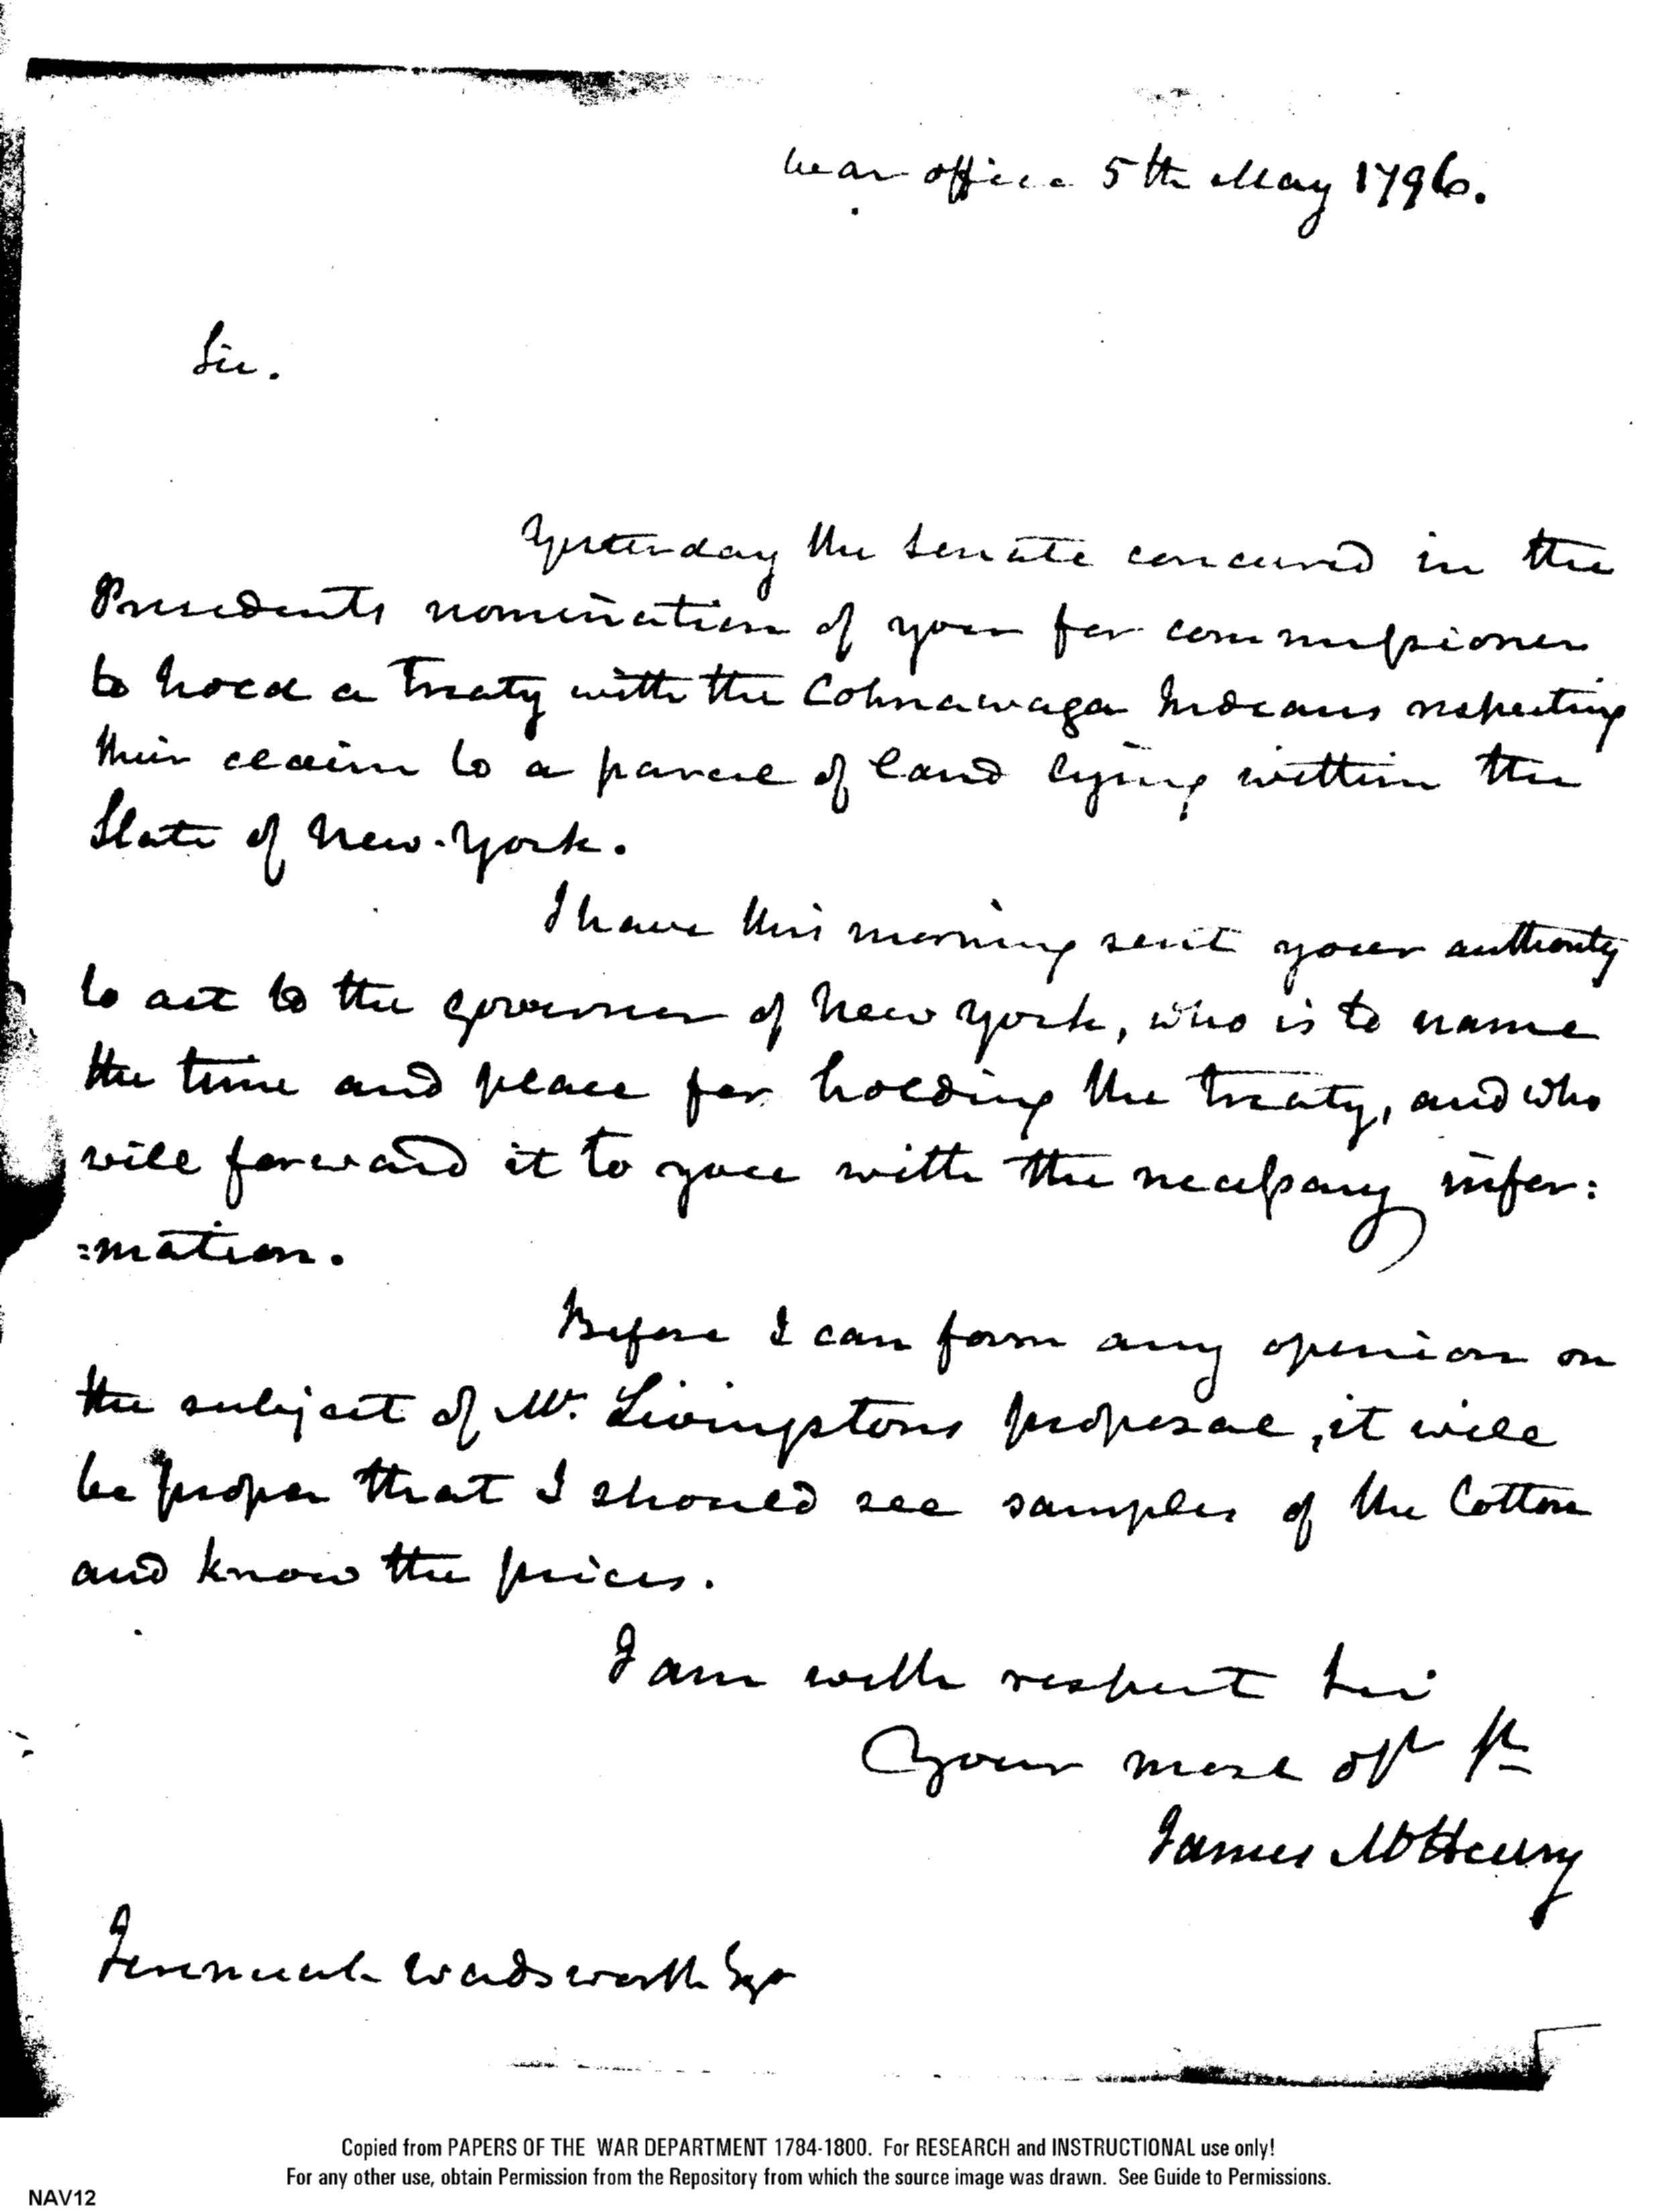 War office 5th May 1796.
Sir.
Yesterday the Senate concured in the
Presedents nomination of your for commissioner
to hold a Treaty with the Cohnawaga Indians respecting
their claim to a parcel of land lying within the
State of New-York.
I have this morning sent your authority
to act to the governor of New York, who is to name
the time and place for holding the treaty, and who
will forward it to you with the necessary infor:
:mation.
Before I can form any openion on
the subject of Mr. Livingstons proposal, it will
be proper that I should see samples of the Cotton
and know the prices.
I am with respect Sir
Your most obt st
James McHenry
Jeremiah Wadsworth Esqr
Copied from PAPERS OF THE WAR DEPARTMENT 1784-1800. For RESEARCH and INSTRUCTIONAL use only!
For any other use, obtain Permission from the Repository from which the source image was drawn. See Guide to Permissions.
NAV12